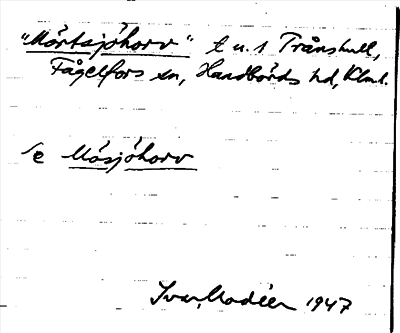 "Mörtsjöhorv" t u. 1 Trånshult,
Fågelfors sn, Handbörds hd, Klm l.
se Mösjöhorv
Ivar Modéer 1947